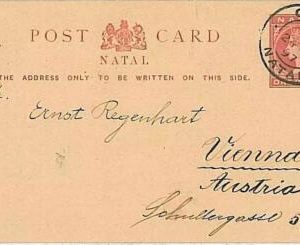 POST CARD
NATAL
THE ADDRESS ONLY TO BE WRITTEN ON THIS SIDE.
Ernst Regenhart
Vienna
Austria
Schullergasse
NATAL